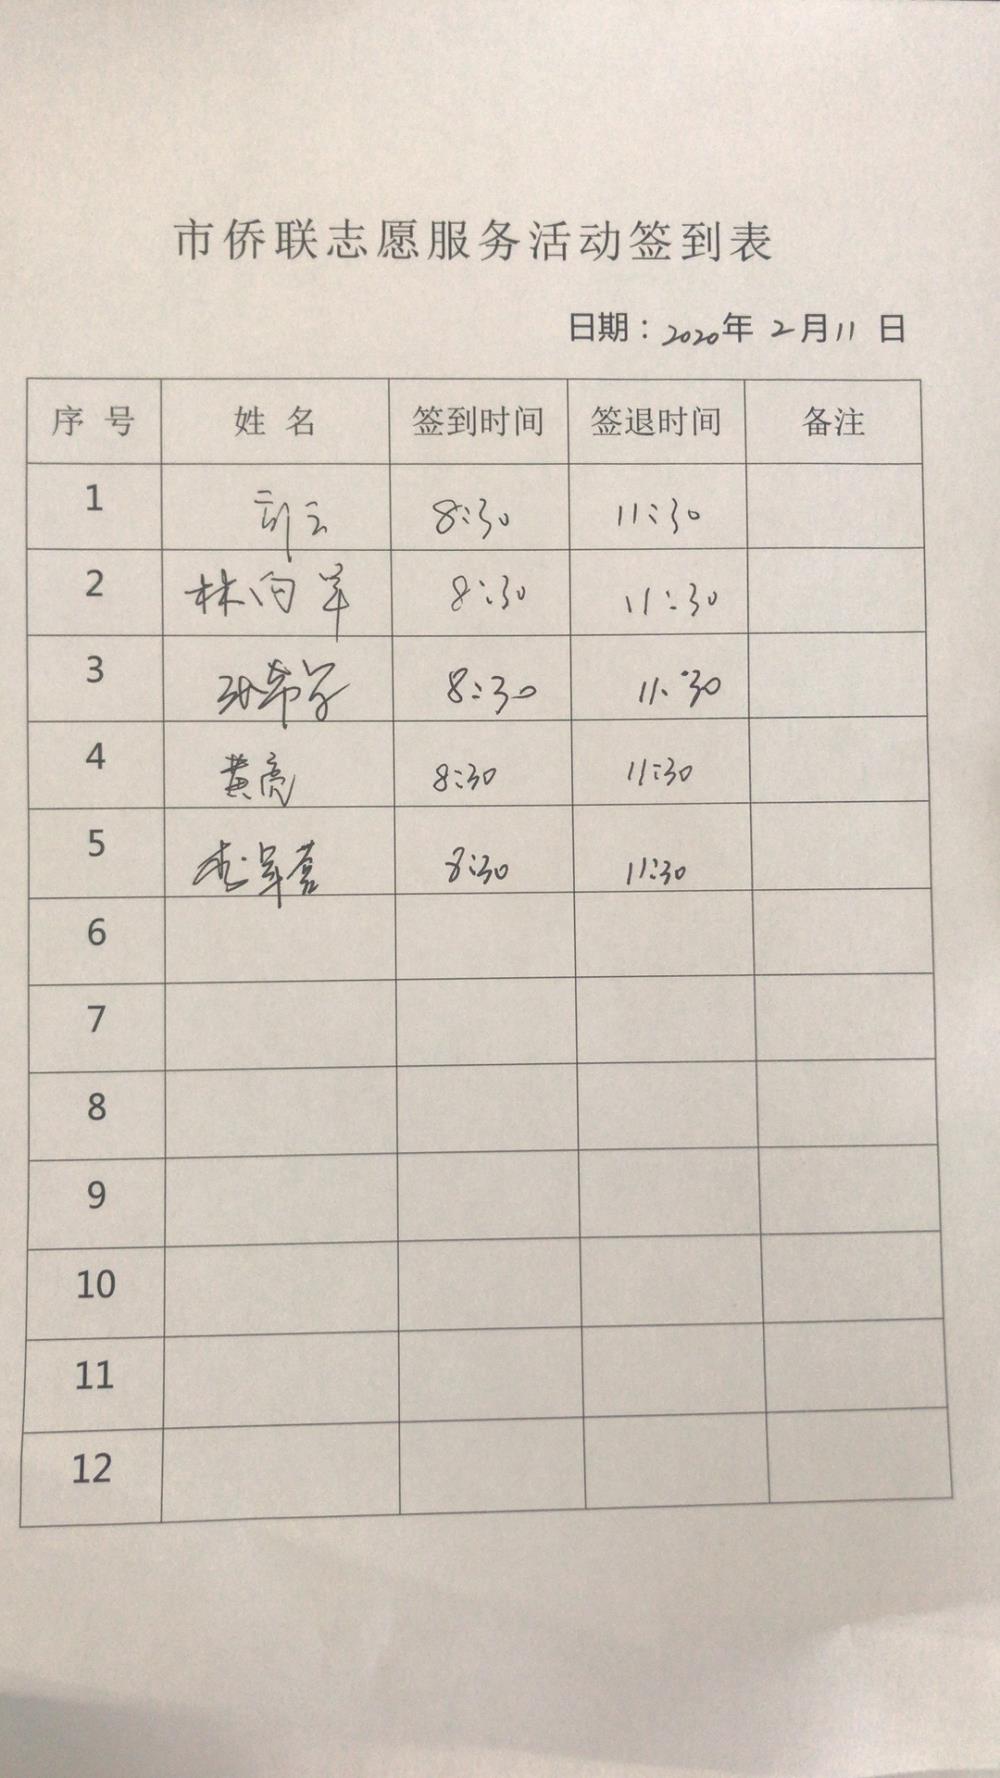 市侨联志愿服务活动签到表
日期：2020年 2月11 日
序 号 姓 名 签到时间 签退时间 备注
1 8:30 11:30
2 林向军 8:30 11:30
3 8:30 11:30
4 黄亮 8:30 11:30
5 8:30 11:30
6
7
8
9
10
11
12